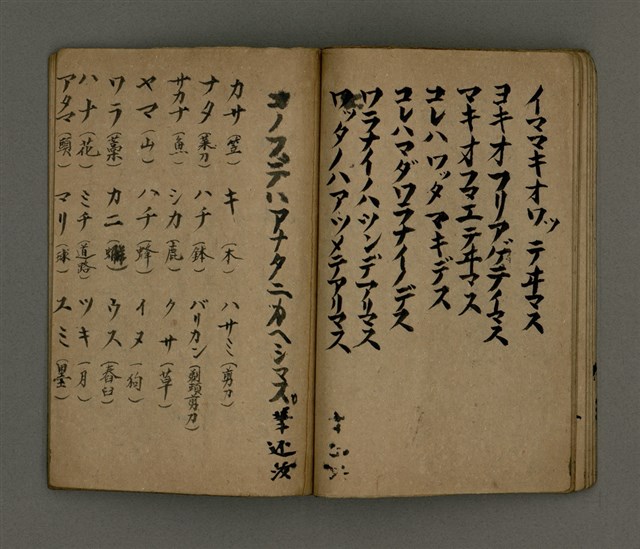 イママキオワッテヰマス
ヨキオフリアゲテイマス
マキオフマエテヰマス
コレハワッタマキデス
コレハマダワラナイノデス
ワラナイノハツンデアリマス
ワッタノハアツメテアリマス
コノフデハアナタニカヘシマス 筆还汝
カサ(笠) キ(木) ハサミ(剪刀)
ナタ(菜刀) ハチ(鉢) バリカン(剃頭剪刀)
サカナ(魚) シカ(鹿) クサ(草)
ヤマ(山) ハチ(蜂) イヌ(狗)
ワラ(藁) カニ ウス(舂臼)
ハナ(花) ミチ(道路) ツキ(月)
アタマ(頭) マリ(球) スミ(墨)